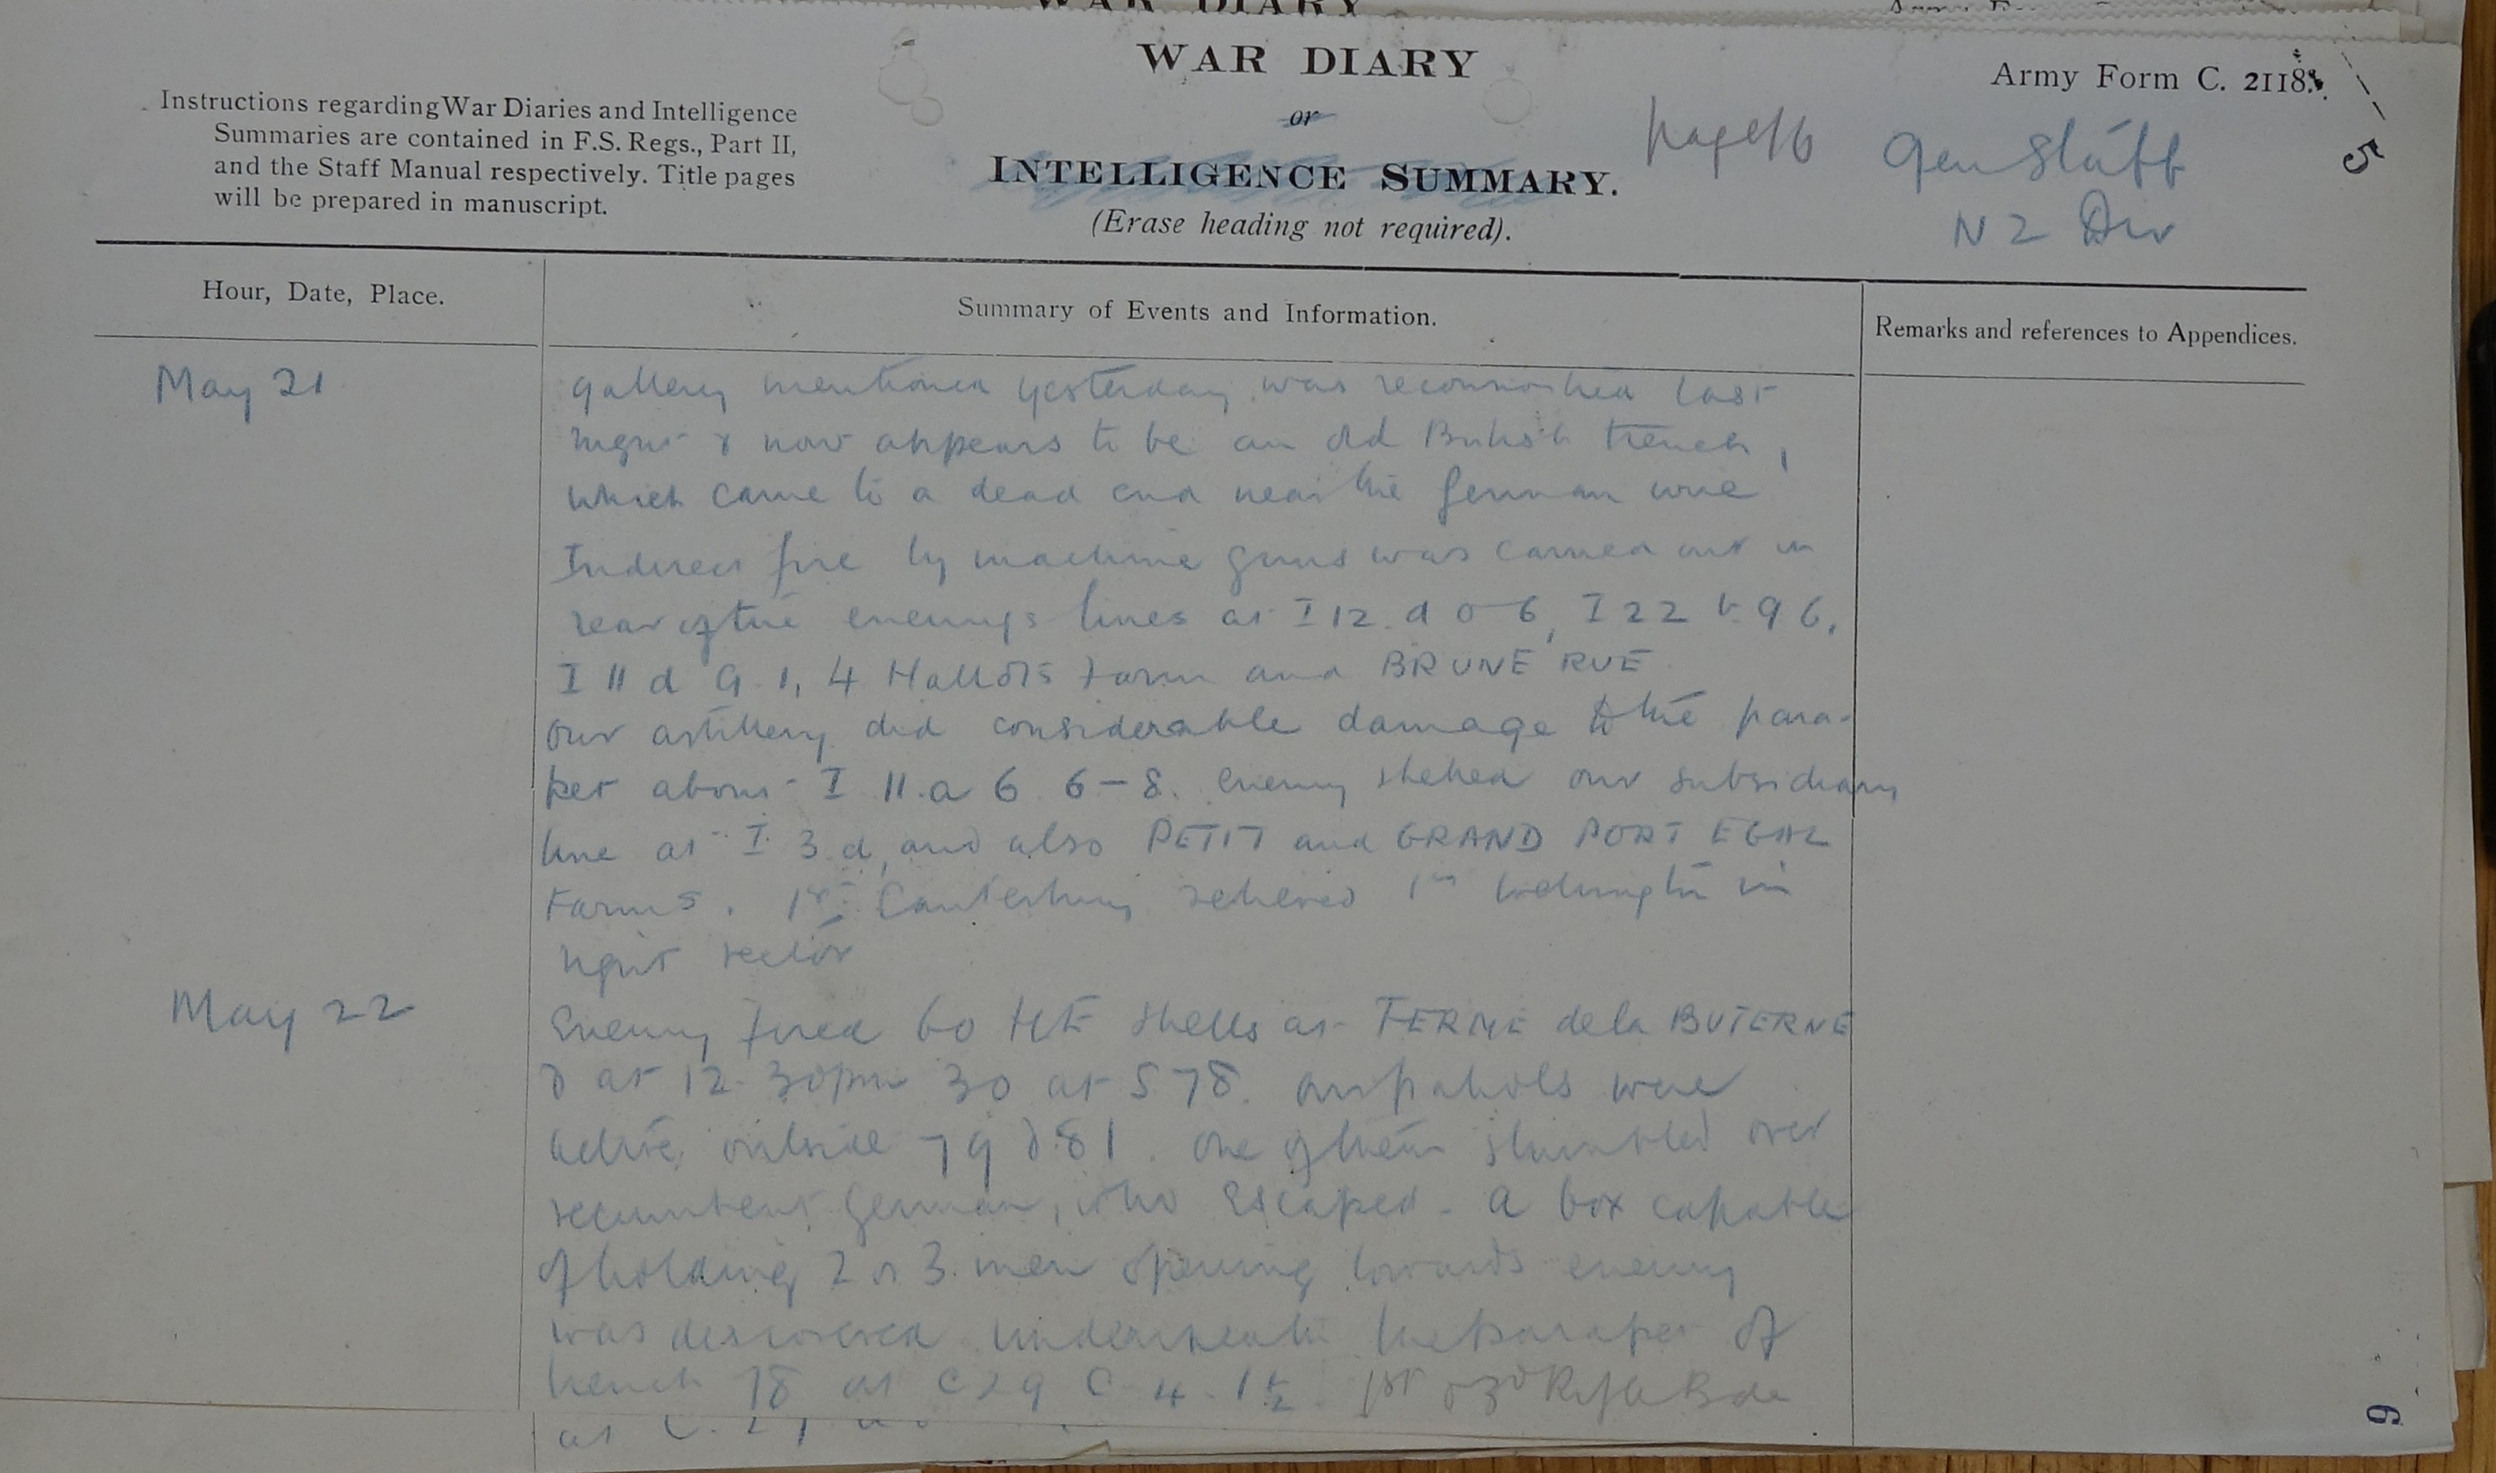 WAR DIARY
Army Form C. 2118.
Instructions regarding War Diaries and Intelligence
Summaries are contained in F.S. Regs., Part II,
and the Staff Manual respectively. Title pages
will be prepared in manuscript.
or
INTELLIGENCE SUMMARY.
(Erase heading not required).
page 16
Gen Staff
N Z Div
5
Hour, Date, Place.
Summary of Events and Information.
Remarks and references to Appendices.
May 21
gallery mentioned yesterday was reconnoitred last
night & now appears to be an old British trench,
which came to a dead end near the German wire
Indirect fire by machine guns was carried out in
rear of the enemy's lines at I 12. d 0 6, I 22 b 9 6,
I 11 d 9. 1, 4 Hallots Farm and BRUNE RUE
our artillery did considerable damage to the para-
pet about I 11. a 6 6-8. enemy shelled our subsidiary
line at I. 3. d, and also PETIT and GRAND PORT EGAL
Farms. 1st Canterbury relieved 1st Wellington in
right sector
May 22
Enemy fired 60 HE shells at FERME de la BUTERNE
& at 12-30pm 30 at S 78. our patrols were
active outside 79 & 81. One of them stumbled over
recumbent German, who escaped. A box capable
of holding 2 or 3 men opening towards enemy
was discovered underneath the parapet of
trench 78 at C 29 C 4. 1½. 1st & 3rd Rifle Bde
6